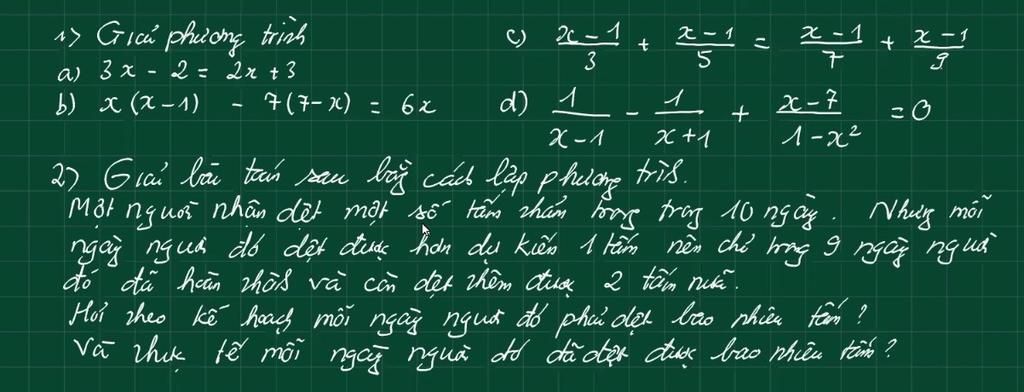 1) Giải phương trình
a) 3x - 2 = 2x + 3
b) x(x-1) - 7(7-x) = 6x
c) \frac{x-1}{3} + \frac{x-1}{5} = \frac{x-1}{7} + \frac{x-1}{9}
d) \frac{1}{x-1} - \frac{1}{x+1} + \frac{x-7}{1-x^2} = 0
2) Giải bài toán sau bằng cách lập phương trình.
Một người nhận dệt một số tấm thảm trong trong 10 ngày. Nhưng mỗi
ngày người đó dệt được hơn dự kiến 1 tấm nên chỉ trong 9 ngày người
đó đã hoàn thành và còn dệt thêm được 2 tấm nữa.
Hỏi theo kế hoạch mỗi ngày người đó phải dệt bao nhiêu tấm?
Và thực tế mỗi ngày người đó đã dệt được bao nhiêu tấm?